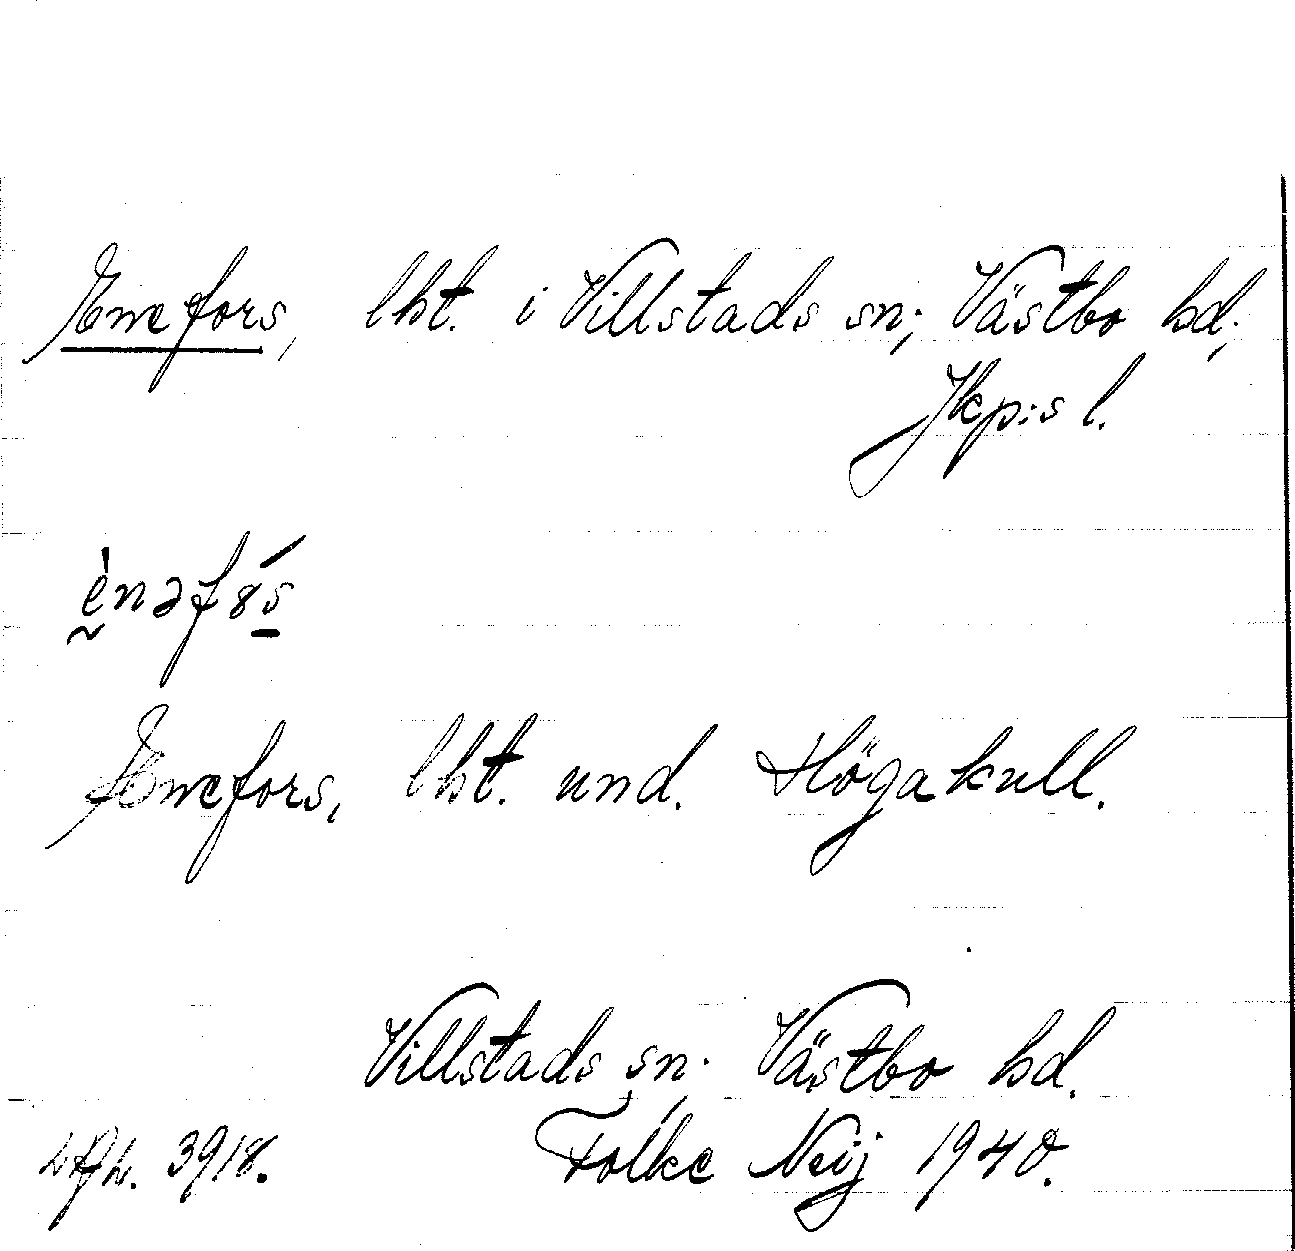 Enefors, lht. i Villstads sn; Västbo hd;
Jkp:s l.
ènəfós
Enefors, lht. und. Högakull.
Villstads sn. Västbo hd.
3918. Folke Neij 1940.